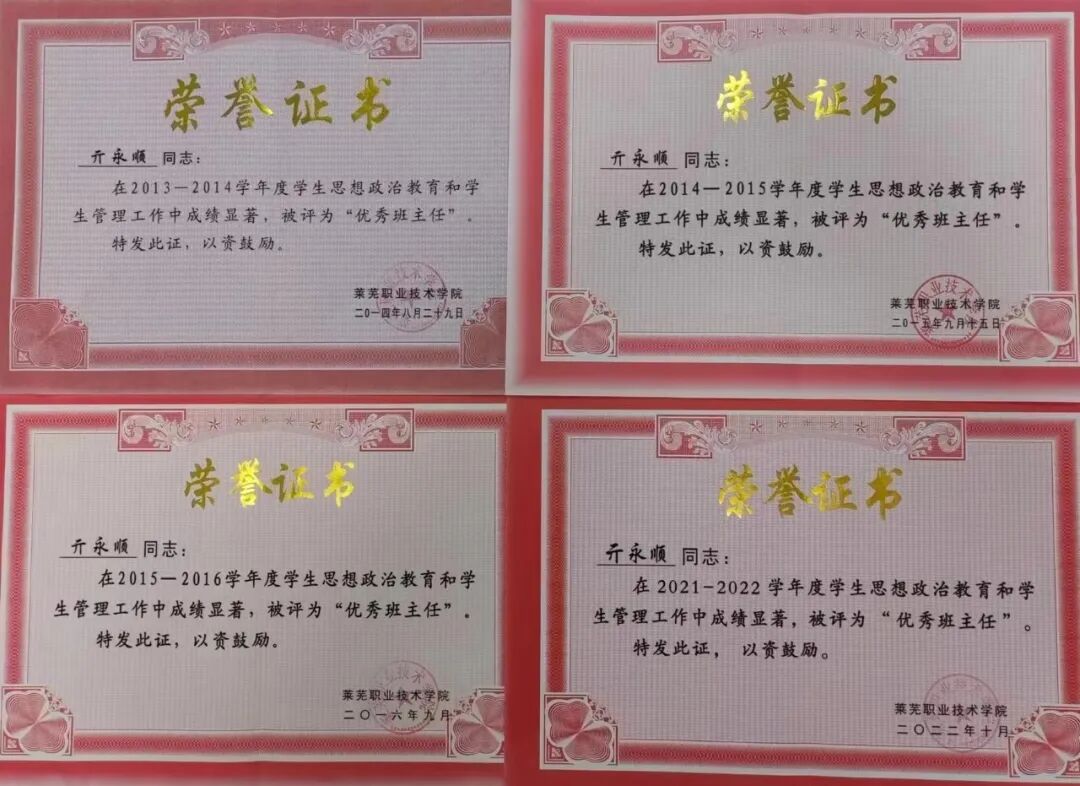 荣誉证书
亓永顺 同志：
在2013—2014学年度学生思想政治教育和学
生管理工作中成绩显著，被评为“优秀班主任”。
特发此证，以资鼓励。
莱芜职业技术学院
二0一四年八月二十九日
荣誉证书
亓永顺 同志：
在2014—2015学年度学生思想政治教育和学
生管理工作中成绩显著，被评为“优秀班主任”。
特发此证，以资鼓励。
莱芜职业技术学院
二0一五年九月十五日
荣誉证书
亓永顺 同志：
在2015—2016学年度学生思想政治教育和学
生管理工作中成绩显著，被评为“优秀班主任”。
特发此证，以资鼓励。
莱芜职业技术学院
二〇一六年九月
荣誉证书
亓永顺 同志：
在2021-2022学年度学生思想政治教育和学
生管理工作中成绩显著，被评为“优秀班主任”。
特发此证，以资鼓励。
莱芜职业技术学院
二〇二二年十月